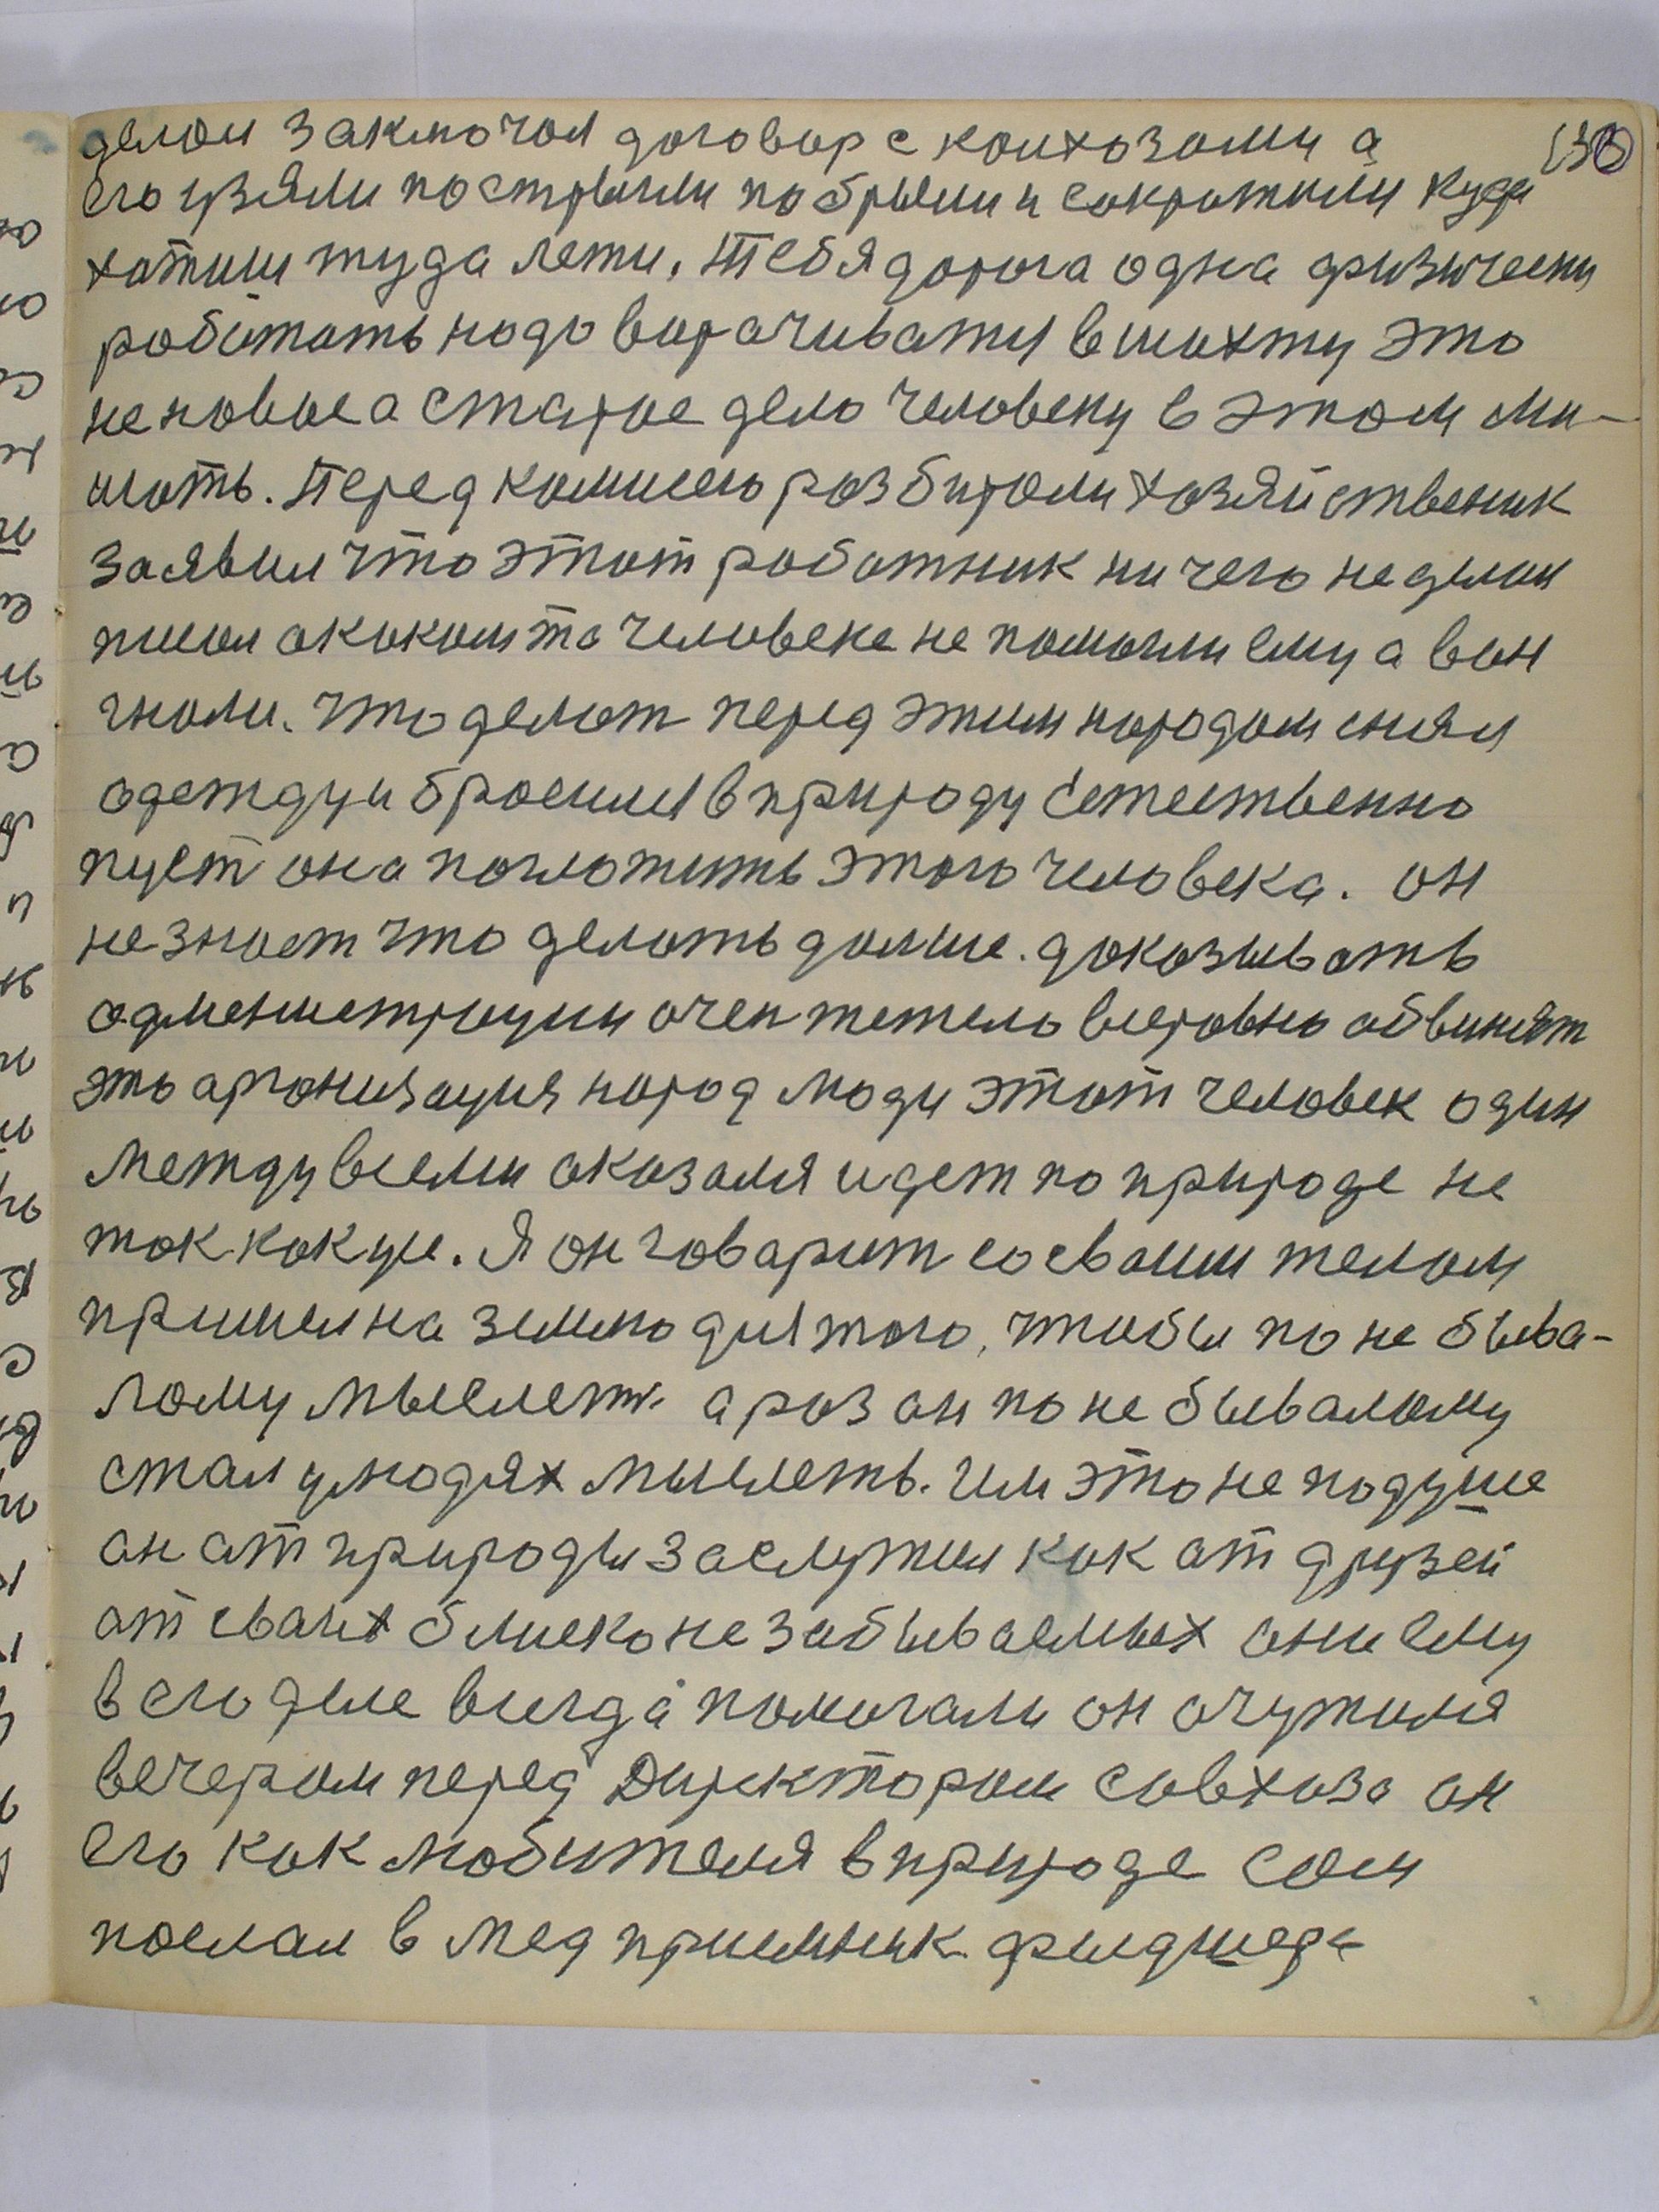 делал заключал договор с колхозами а
его узяли постригли побрыли и сократили куда
хотиш туда лети. Тебя дорога одна физически
работать надо ворачиватся в шахту это
не новые а старые дело человеку в этом ми-
шать. Перед комисею розбирали хозяйственик
заявил что этот работник ни чего не делал
писал окаком та человеке не помогли ему а вон
гнали. Что делат перед этим народом снял
одежду и бросился в природу естественно
пуст она положить этого человека. он
не знает что делать далше. доказывать
одменистрации очен тежело всеровно обвинят
это арганизация народ люди этот человек один
между всеми оказался идет по природе не
ток как усе. Я он говарит со сваим телом
пришел на землю для того, чтобы по не быва-
лому мыслет. а раз он по не бывалому
стал улюдях мыслеть. Им это не подуше
он от природы заслужил как от друзей
от сваих блиско не забываемых они ему
в его деле всегда помогали он очутился
вечером перед Директором совхоза он
его как любителя в природе сам
послал в мед приемник филдшера